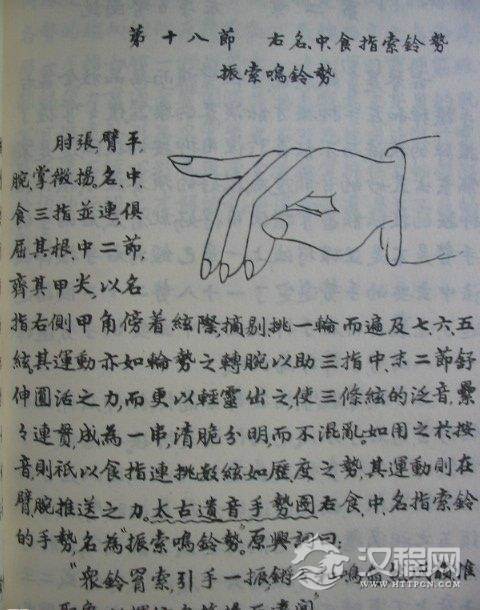 第十八節　右名、中、食指索鈴勢
振索鳴鈴勢
肘張臂平，
腕掌微揚，名、中、
食三指並連，俱
屈其根、中二節，
齊其甲尖，以名
指右側甲角傍着絃際，摘剔挑一輪而遍及七、六、五
絃其運動亦如輪勢之轉腕以助三指中、末二節舒
伸圓活之力，而更以輕靈出之，使三條絃的泛音，纍
々連貫，成為一串，清脆分明，而不混亂。如用之於按
音，則祇以食指連挑數絃如歷度之勢，其運動則在
臂腕推送之力。太古遺音手勢圖右食中、名指索鈴
的手勢名為“振索鳴鈴勢。”原興詞曰：
“衆鈴罥索引手一振，
汉程网
HTTPCN.COM